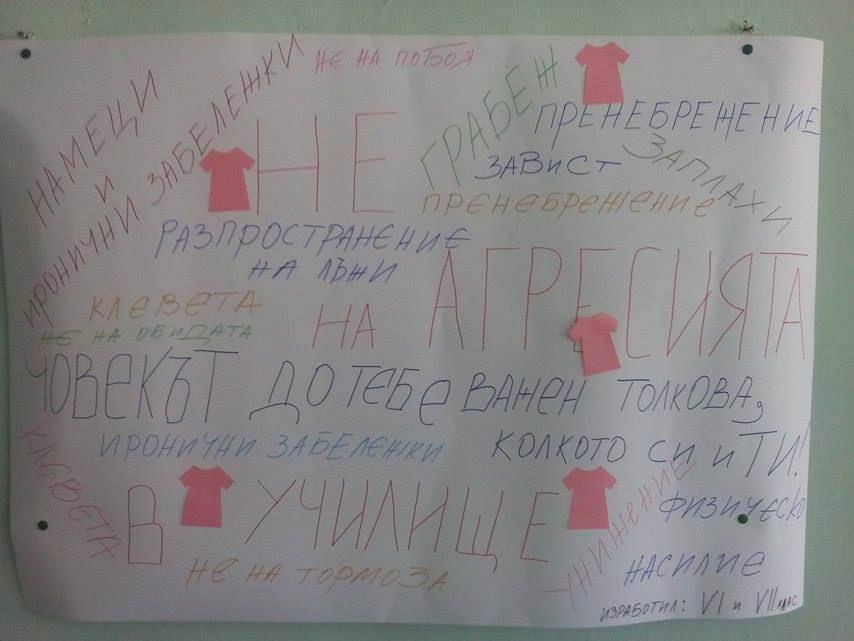 НЕ НА ПОБОЯ
НАМЕЦИ
И
ИРОНИЧНИ ЗАБЕЛЕЖКИ
НЕ
ГРАБЕЖ
ПРЕНЕБРЕЖЕНИЕ
ЗАВИСТ
ЗАПЛАХИ
ПРЕНЕБРЕЖЕНИЕ
РАЗПРОСТРАНЕНИЕ
НА ЛЪЖИ
КЛЕВЕТА
НЕ НА ОБИДАТА
НА АГРЕСИЯТА
ЧОВЕКЪТ ДО ТЕБЕ ВАЖЕН ТОЛКОВА,
КОЛКОТО СИ И ТИ!
ИРОНИЧНИ ЗАБЕЛЕЖКИ
КЛЕВЕТА
В УЧИЛИЩЕ
УНИЖЕНИЕ
ФИЗИЧЕСКО
НАСИЛИЕ
НЕ НА ТОРМОЗА
ИЗРАБОТИЛ: VI И VII КЛАС